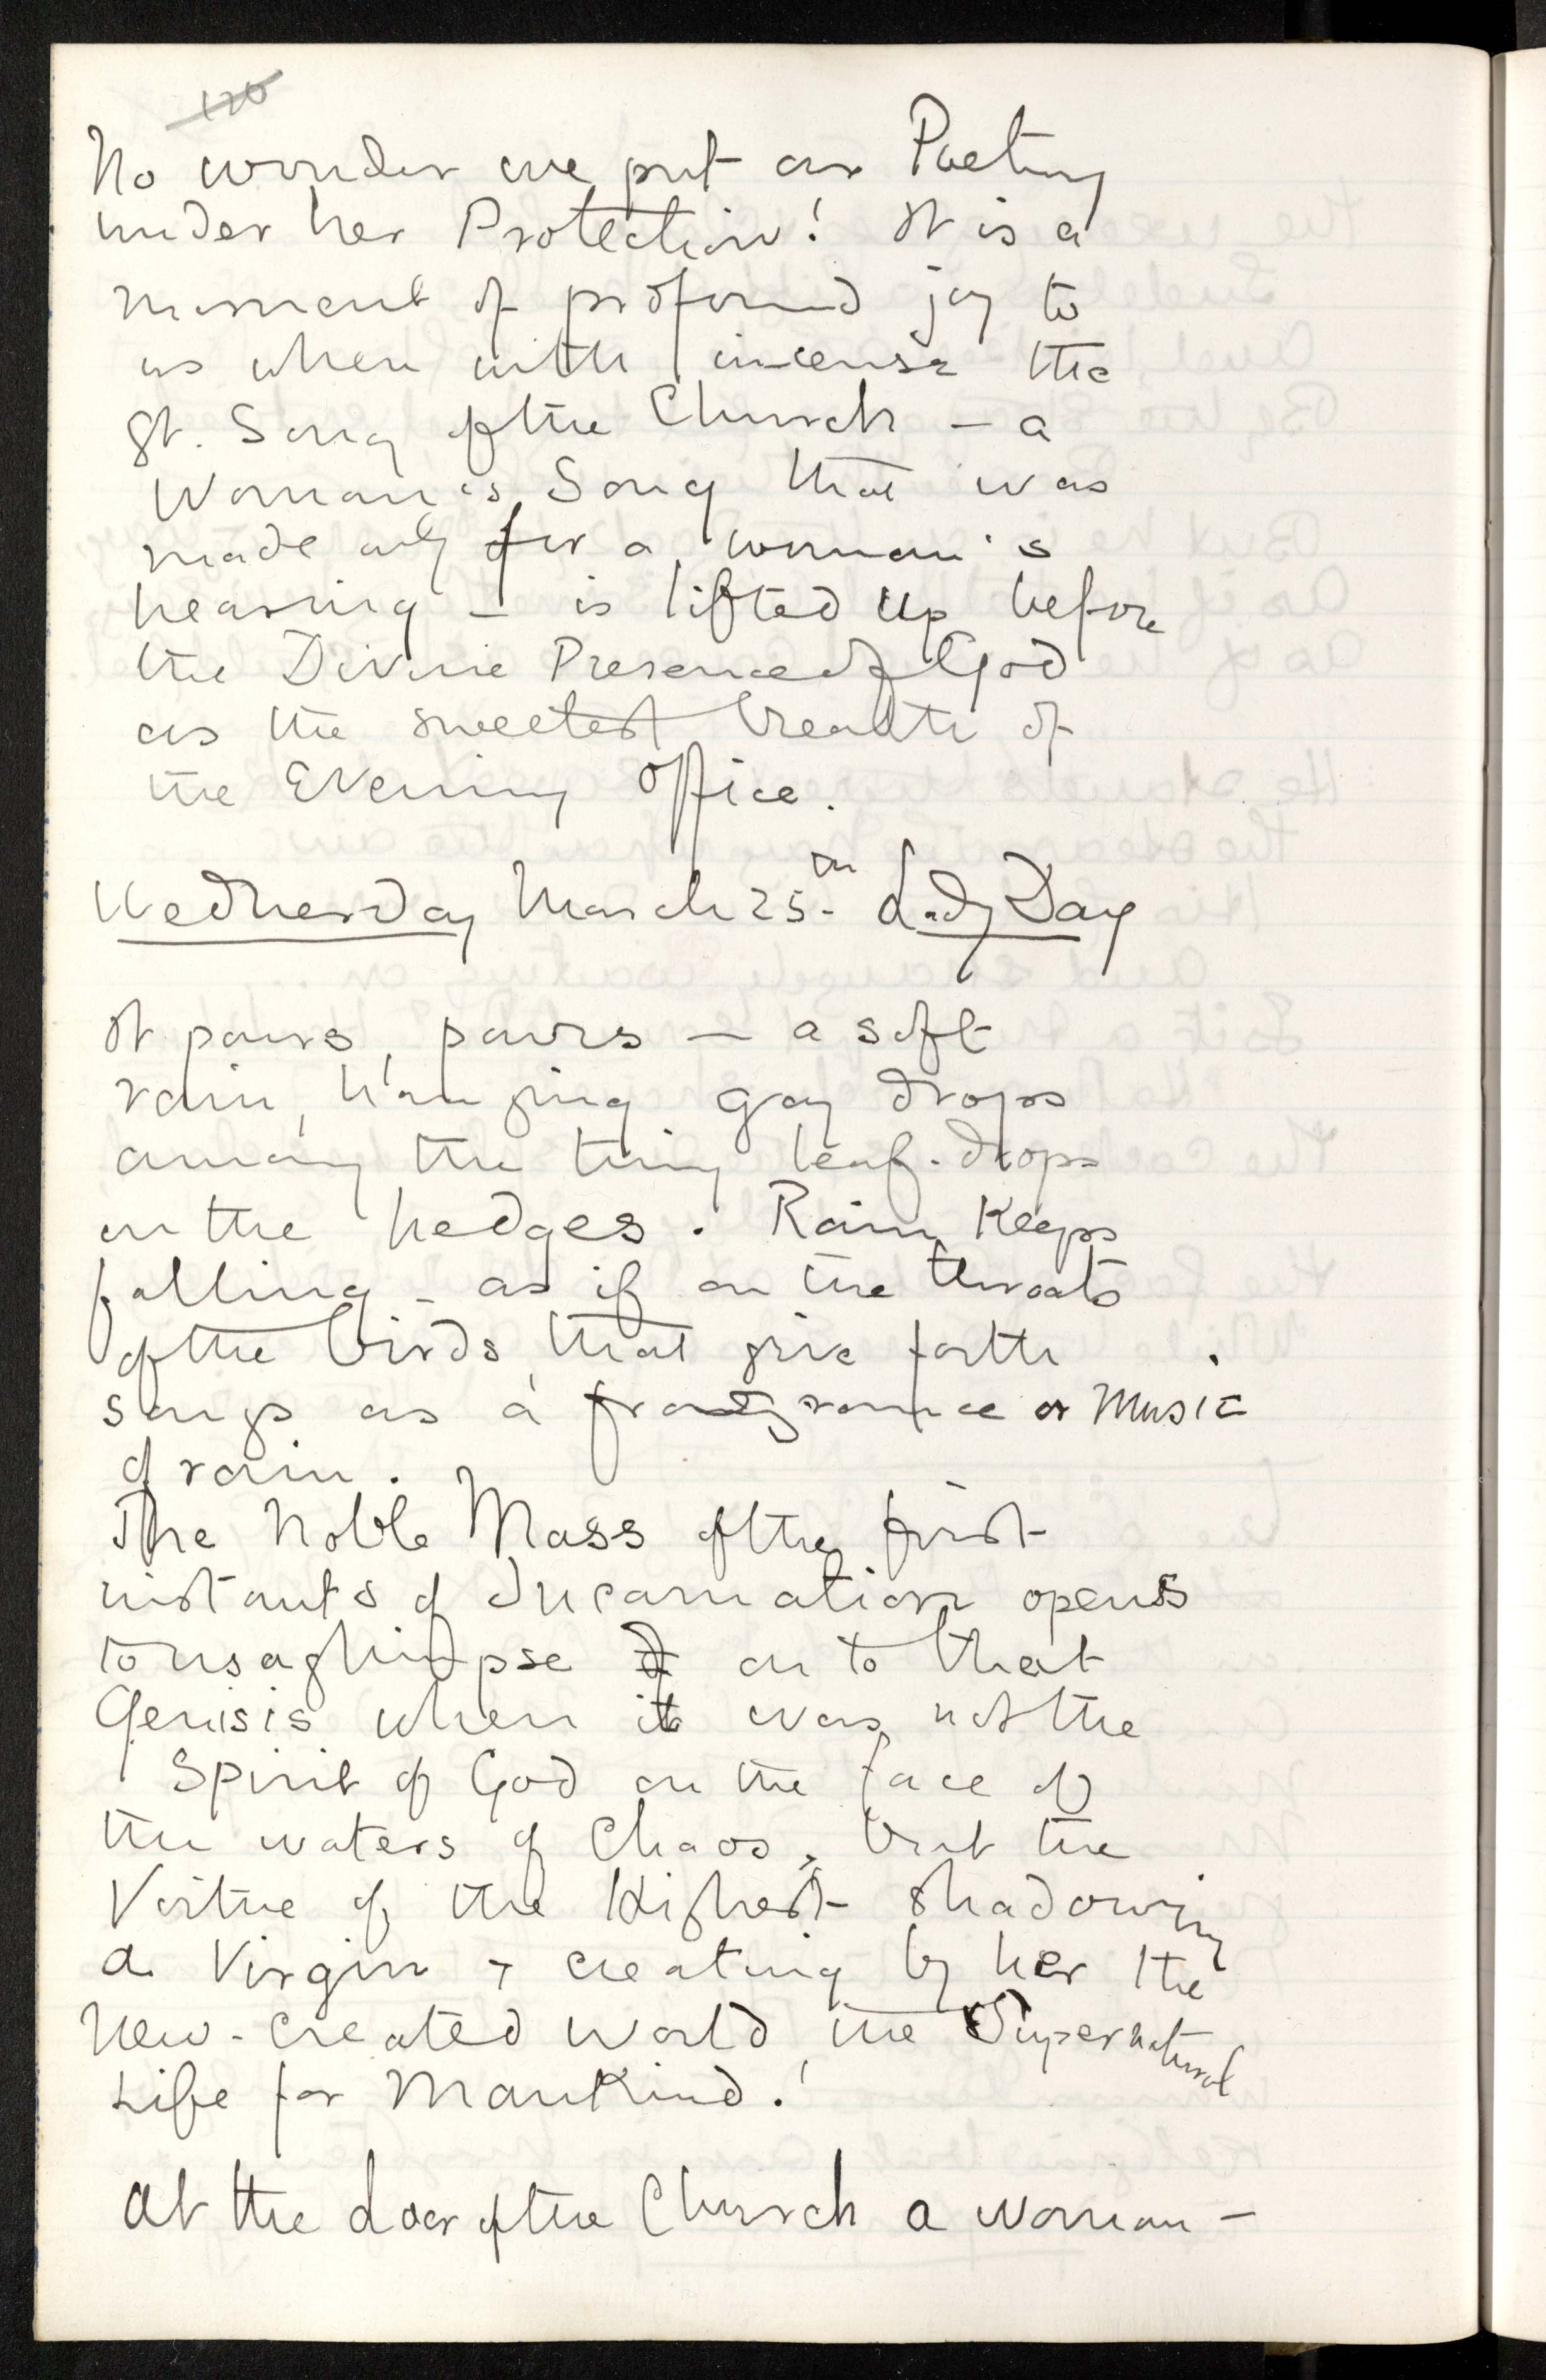 120
No wonder we put our Poetry
under her Protection! It is a
moment of profound joy to
us when with incense the
gt. Song of the Church – a
Woman's Song that was
made only for a woman's
hearing – is lifted up before
the Divine Presence of God
as the sweetest breath of
the Evening Office.
Wednesday March 25th Lady Day
It pours, pours – a soft
rain, hanging gay drops
among the tiny leaf-drops
on the hedges. Rain keeps
falling – as if on the throats
of the birds that give forth
songs as a fragrance or music
of rain.
The Noble Mass of the first
instants of Incarnation opens
to us a glimpse of on to that
Genisis when it was not the
Spirit of God on the face of
the waters of Chaos, but the
Virtue of the Highest shadowing
a Virgin + creating by her the
new-created world, the Supernatural
Life for Mankind!
At the door of the Church a woman –